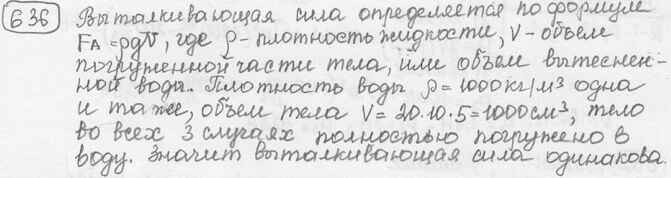 636 Выталкивающая сила определяется по формуле
FА = ρgV, где ρ - плотность жидкости, V - объем
погруженной части тела, или объем вытеснен-
ной воды. Плотность воды ρ = 1000 кг/м³ одна
и та же, объем тела V = 20·10·5 = 1000 см³, тело
во всех 3 случаях полностью погружено в
воду. Значит выталкивающая сила одинакова.